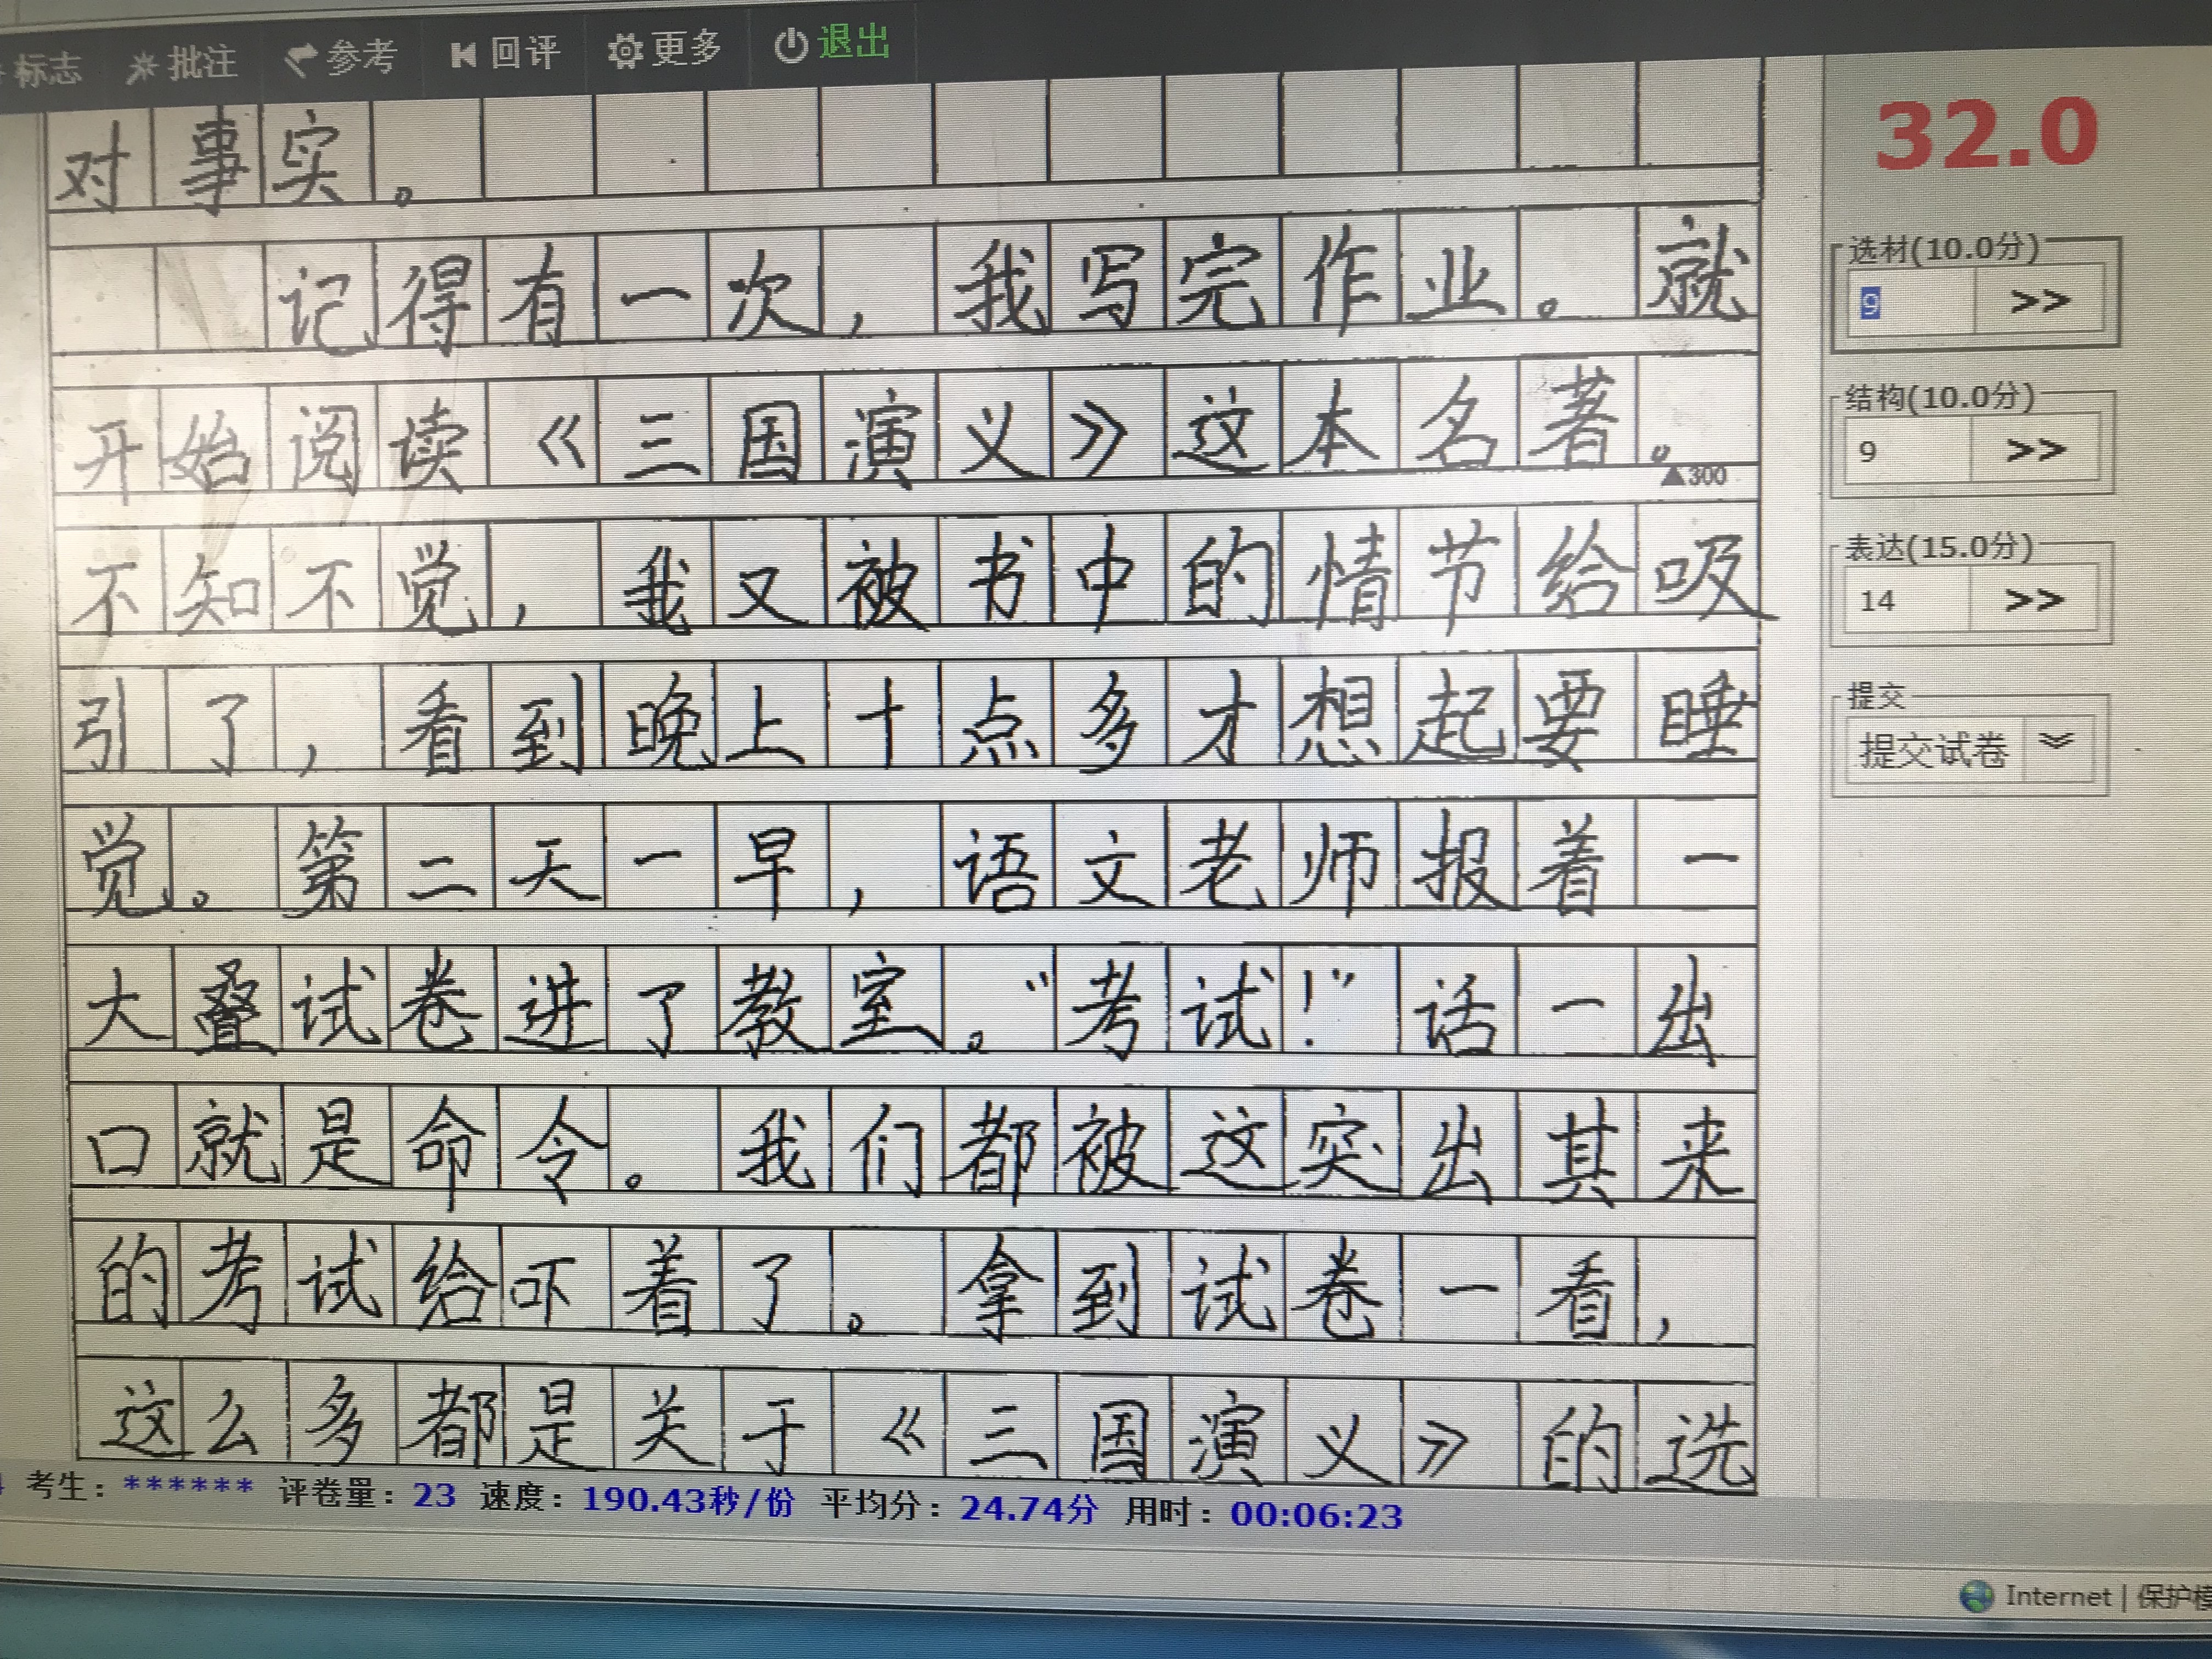 标志 批注 参考 回评 更多 退出
对事实。
记得有一次，我写完作业。就
开始阅读《三国演义》这本名著。
▲300
不知不觉，我又被书中的情节给吸
引了，看到晚上十点多才想起要睡
觉。第二天一早，语文老师报着一
大叠试卷进了教室。“考试！”话一出
口就是命令。我们都被这突出其来
的考试给吓着了。拿到试卷一看，
这么多都是关于《三国演义》的选
32.0
选材(10.0分)
9 >>
结构(10.0分)
9 >>
表达(15.0分)
14 >>
提交
提交试卷
考生：****** 评卷量：23 速度：190.43秒/份 平均分：24.74分 用时：00:06:23
Internet | 保护模